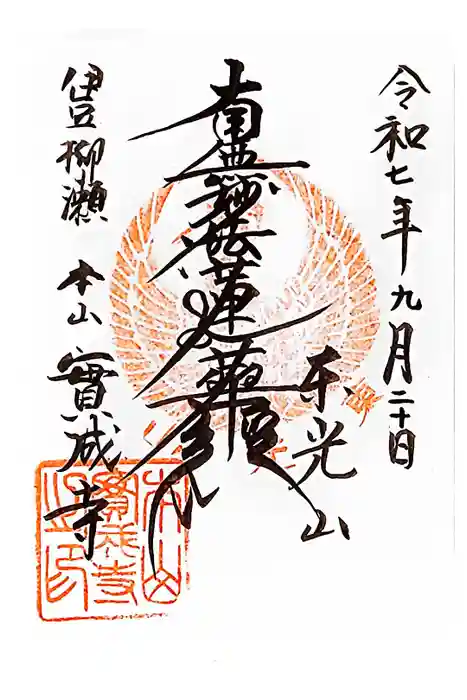 令和七年九月二十日
東光山
南無妙法蓮華経
伊豆柳瀬 本山 實成寺
本山
實成寺